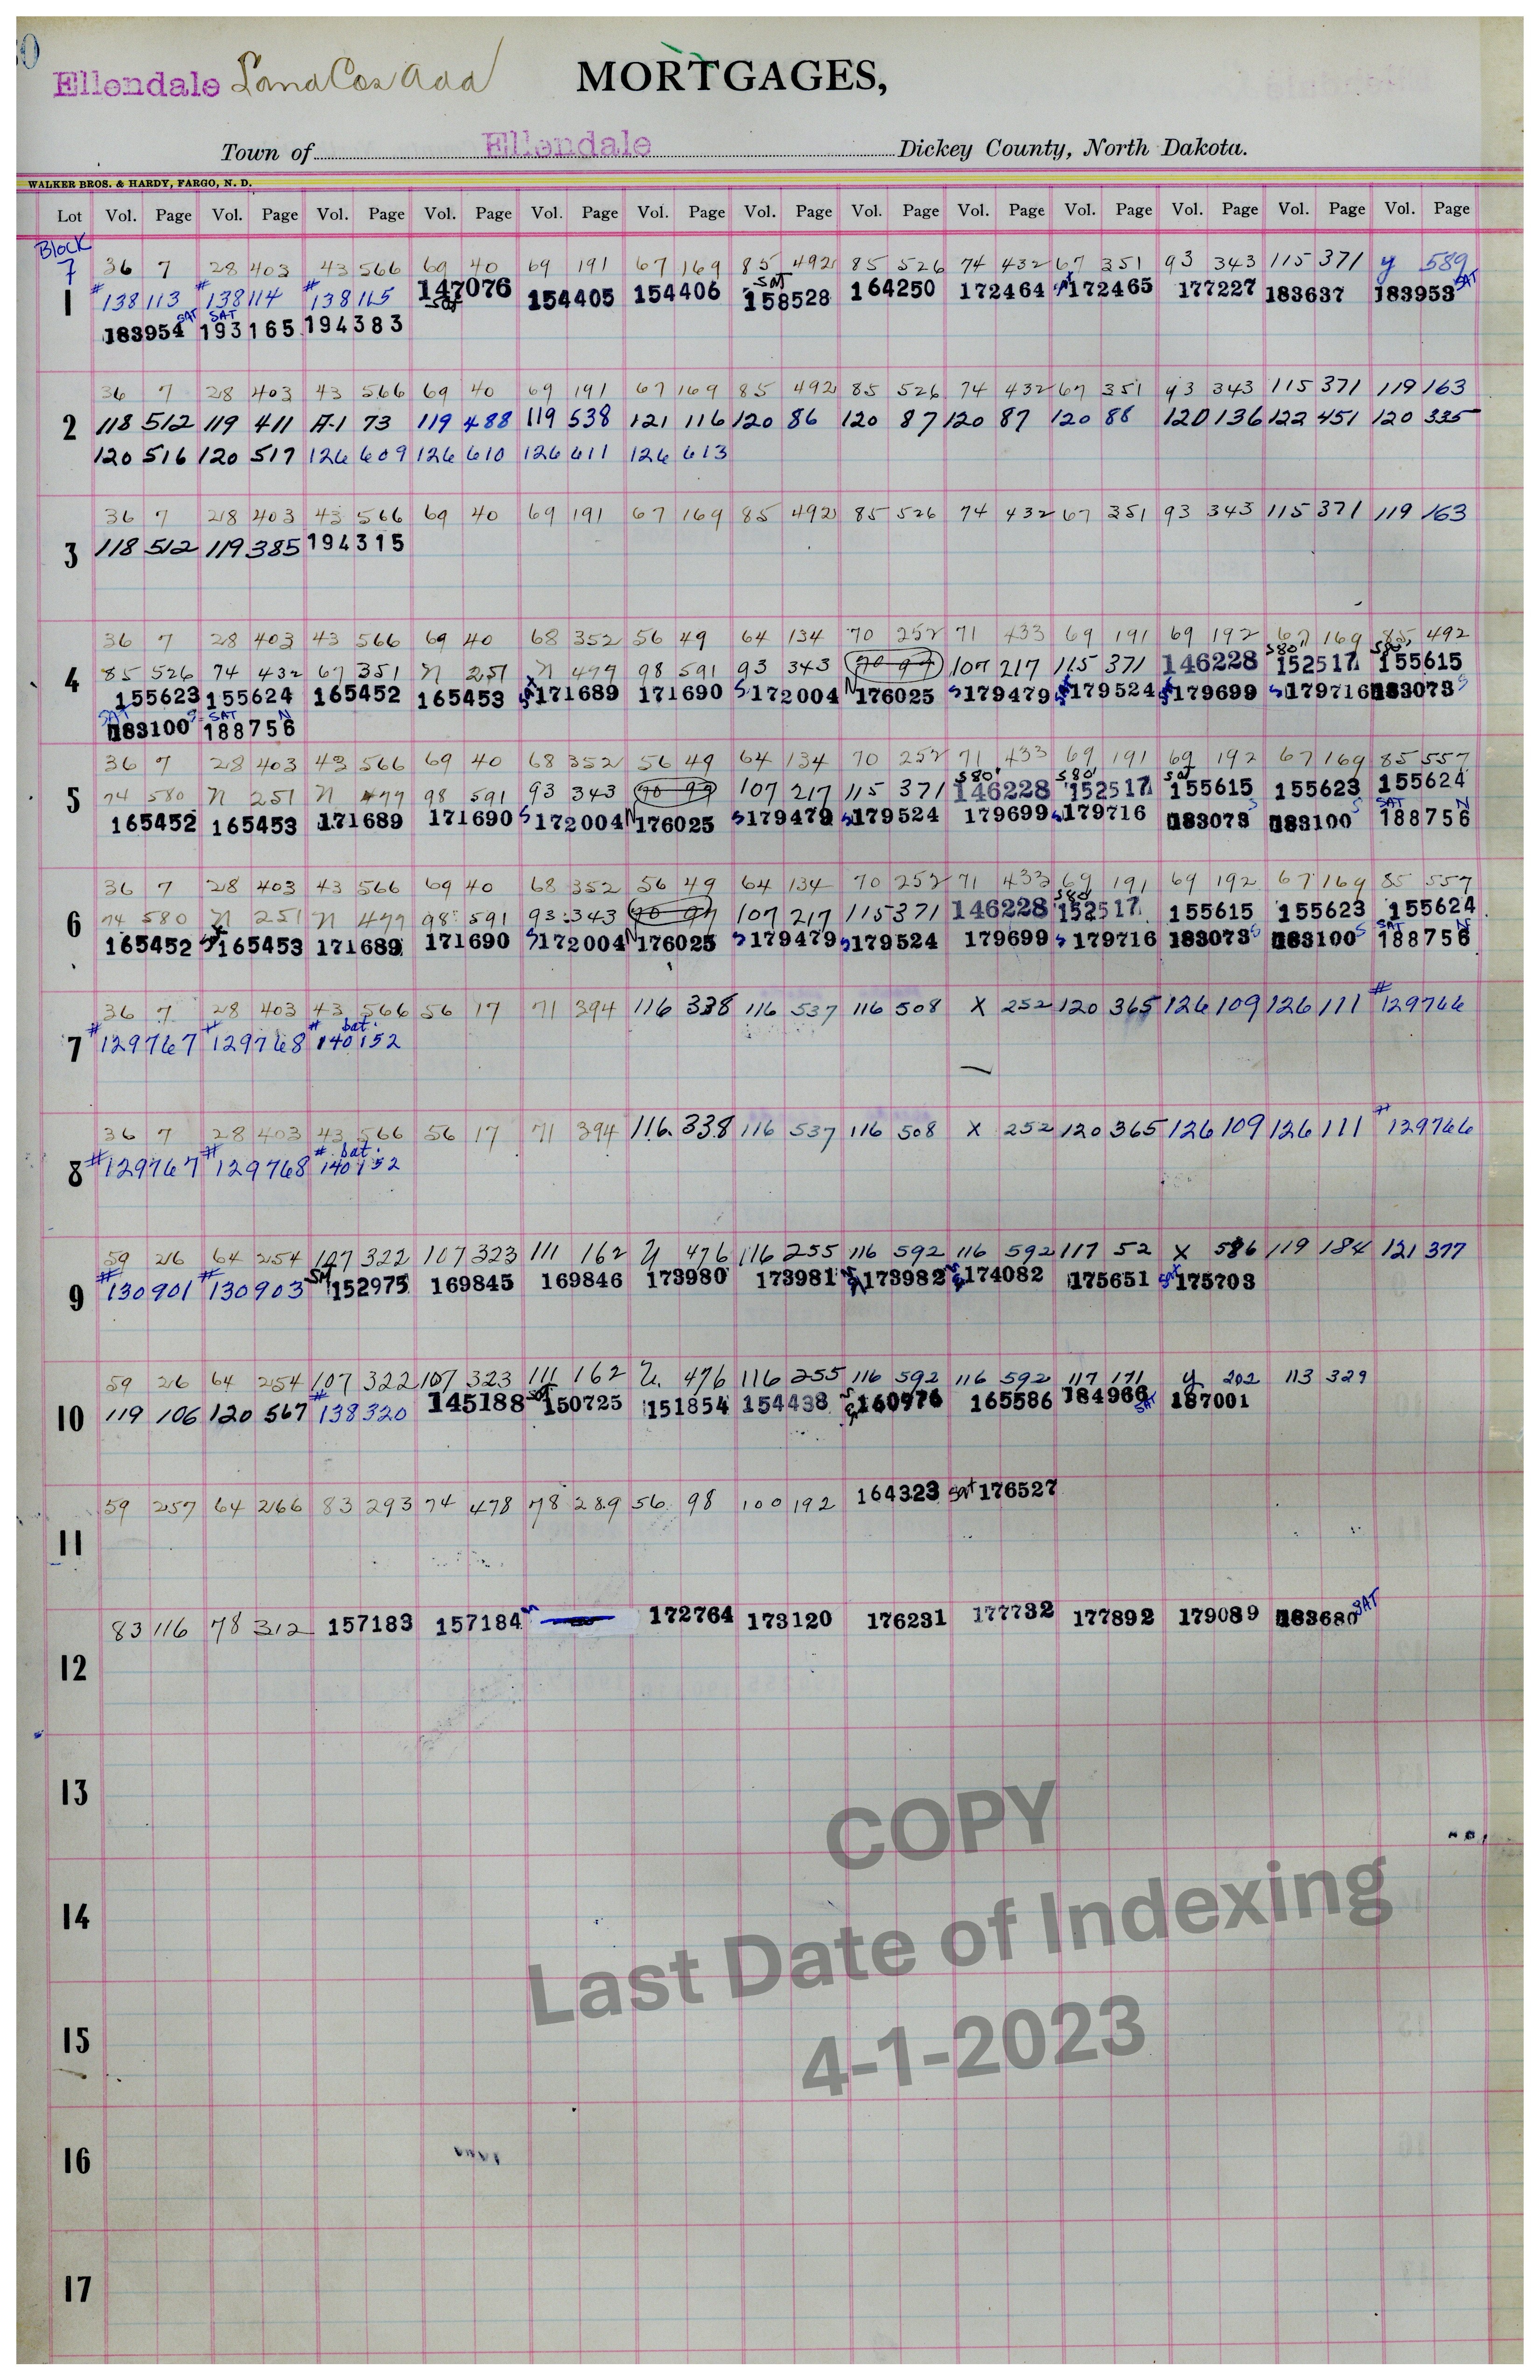 Ellendale Land Cos Add
MORTGAGES,
Town of Ellendale Dickey County, North Dakota.
WALKER BROS. & HARDY, FARGO, N. D.
Lot Vol. Page Vol. Page Vol. Page Vol. Page Vol. Page Vol. Page Vol. Page Vol. Page Vol. Page Vol. Page Vol. Page Vol. Page Vol. Page
Block
7 36 7 28 403 43 566 69 40 69 191 67 169 85 492 85 526 74 432 67 351 93 343 115 371 y 589
1 #138113 #138114 #138115 147076 Sat 154405 154406 SAT 158528 164250 172464 172465 177227 183637 183953 SAT
183954 SAT SAT 193165 194383
36 7 28 403 43 566 69 40 69 191 67 169 85 492 85 526 74 432 67 351 93 343 115 371 119 163
2 118 512 119 411 A-1 73 119 488 119 538 121 116 120 86 120 87 120 87 120 88 120 136 122 451 120 335
120 516 120 517 126 609 126 610 126 611 126 613
36 7 28 403 43 566 69 40 69 191 67 169 85 492 85 526 74 432 67 351 93 343 115 371 119 163
3 118 512 119 385 194315
36 7 28 403 43 566 69 40 68 352 56 49 64 134 70 252 71 433 69 191 69 192 67 169 85 492
4 85 526 74 432 67 351 n 251 n 499 98 591 93 343 90 99 107 217 115 371 146228 S80 152517 S80 155615
155623 155624 165452 165453 171689 171690 S 172004 N 176025 S 179479 179524 179699 S 179716 183073 S
SAT 183100 S SAT 188756 N
36 7 28 403 43 566 69 40 68 352 56 49 64 134 70 252 71 433 69 191 69 192 67 169 85 557
5 74 580 n 251 n 499 98 591 93 343 90 99 107 217 115 371 S80 146228 S80 152517 Sat 155615 155623 155624
165452 165453 171689 171690 S 172004 N 176025 S 179479 S 179524 179699 S 179716 183073 S 183100 S SAT 188756 N
36 7 28 403 43 566 69 40 68 352 56 49 64 134 70 252 71 433 69 191 69 192 67 169 85 557
6 74 580 n 251 n 499 98 591 93 343 90 99 107 217 115 371 146228 S80 152517 155615 155623 155624
165452 165453 171689 171690 S 172004 N 176025 S 179479 S 179524 179699 S 179716 183073 S 183100 S SAT 188756 N
36 7 28 403 43 566 56 17 71 394 116 338 116 537 116 508 X 252 120 365 126 109 126 111 #129766
7 #129767 #129768 # Sat. 140152
36 7 28 403 43 566 56 17 71 394 116 338 116 537 116 508 X 252 120 365 126 109 126 111 #129766
8 #129767 #129768 # Sat. 140152
59 26 64 254 107 322 107 323 111 162 U 476 116 255 116 592 116 592 117 52 X 586 119 184 121 377
9 #130901 #130903 SAT 152975 169845 169846 173980 173981 173982 174082 175651 Sat 175703
59 26 64 254 107 322 107 323 111 162 U. 476 116 255 116 592 116 592 117 171 y 202 113 329
10 119 106 120 567 #138320 145188 Sat 150725 151854 154438 160976 165586 184966 SAT 187001
59 257 64 266 83 293 74 478 78 289 56 98 100 192 164323 Sat 176527
11
83 116 78 312 157183 157184 172764 173120 176231 177732 177892 179089 183680 SAT
12
13
COPY
14
Last Date of Indexing
15
4-1-2023
16
17